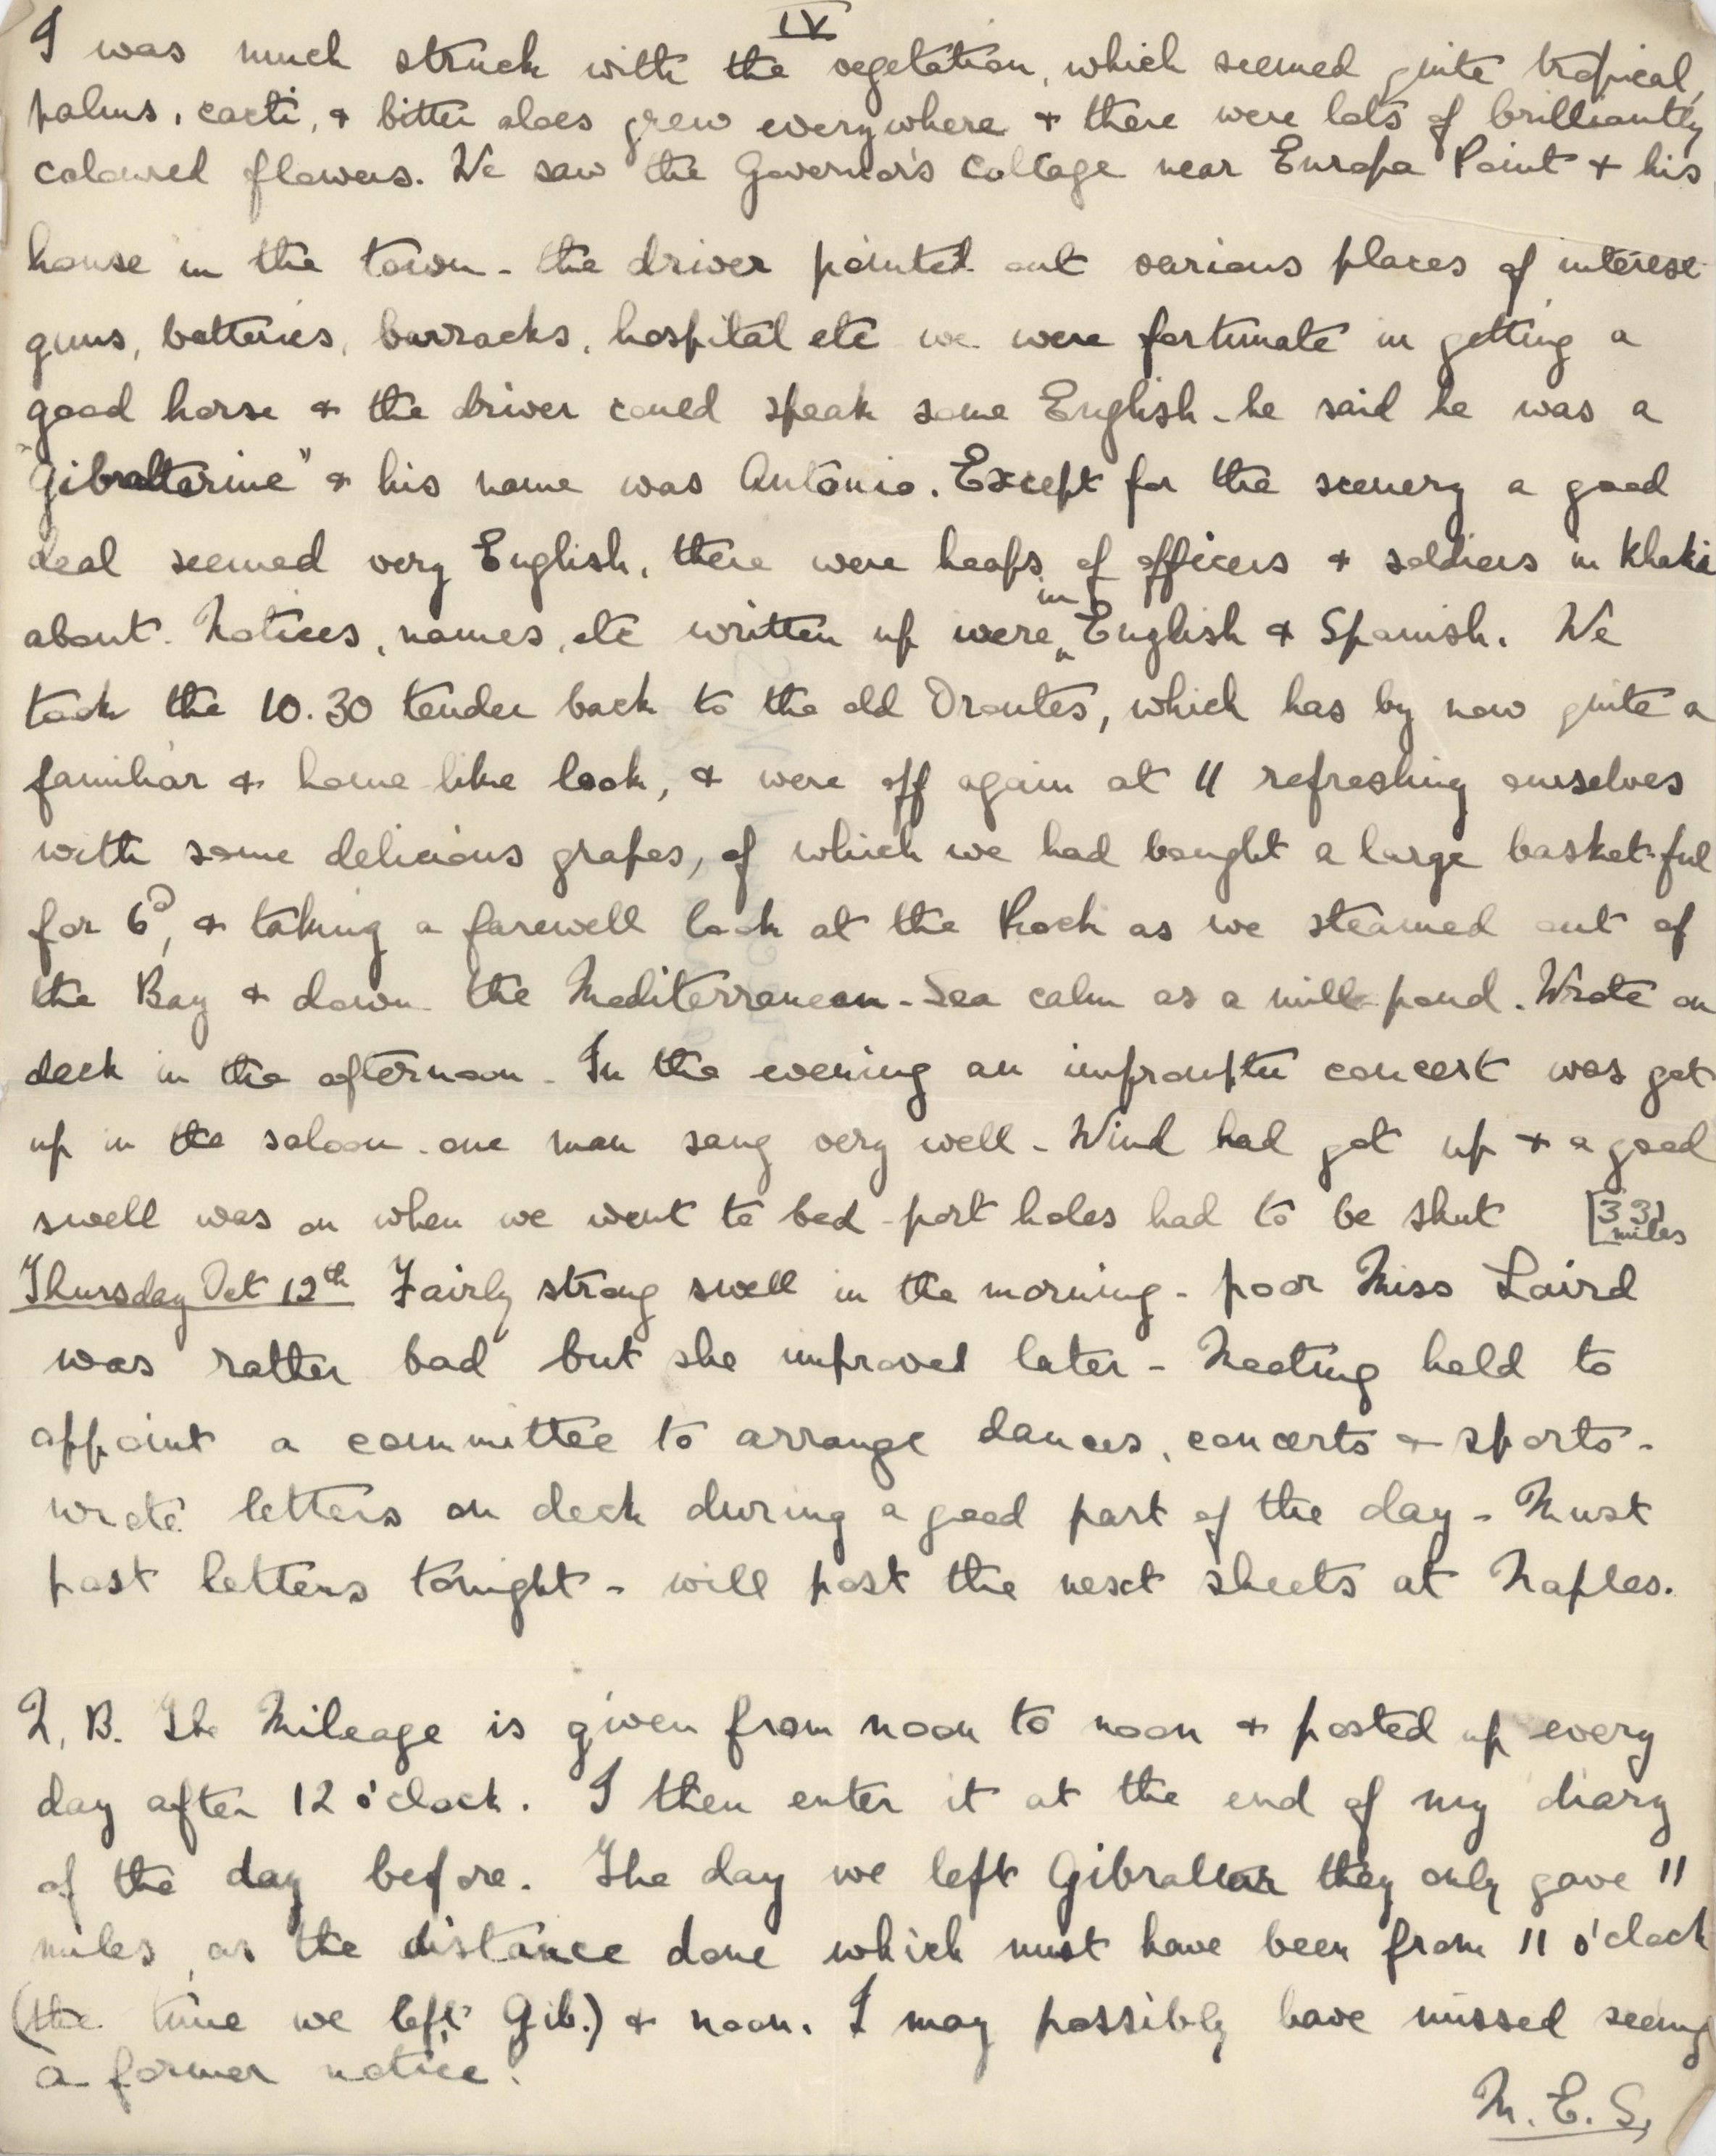 IV
I was much struck with the vegetation, which seemed quite tropical,
palms, cacti, & bitter aloes grew everywhere & there were lots of brilliantly
coloured flowers. We saw the Governor's Cottage near Europa Point & his
house in the town - the driver pointed out various places of interest
guns, batteries, barracks, hospital etc we were fortunate in getting a
good horse & the driver could speak some English - he said he was a
"Gibraltarine" & his name was Antonio. Except for the scenery a good
deal seemed very English, there were heaps of officers & soldiers in Khaki
about. Notices, names, etc written up were in English & Spanish. We
took the 10.30 tender back to the old Orontes, which has by now quite a
familiar & home-like look, & were off again at 11 refreshing ourselves
with some delicious grapes, of which we had bought a large basket-ful
for 6d, & taking a farewell look at the Rock as we steamed out of
the Bay & down the Mediterranean - Sea calm as a mill-pond. Wrote on
deck in the afternoon - In the evening an impromptu concert was got
up in the saloon - one man sang very well - Wind had got up & a good
swell was on when we went to bed - port holes had to be shut [331 miles
Thursday Oct 12th Fairly strong swell in the morning - poor Miss Laird
was rather bad but she improved later - Meeting held to
appoint a committee to arrange dances, concerts & sports -
wrote letters on deck during a good part of the day - Must
post letters tonight - will post the next sheets at Naples.
N.B. The Mileage is given from noon to noon & posted up every
day after 12 o'clock. I then enter it at the end of my diary
of the day before. The day we left Gibraltar they only gave 11
miles, as the distance done which must have been from 11 o'clock
(the time we left Gib.) & noon. I may possibly have missed seeing
a former notice.
M.E.S,